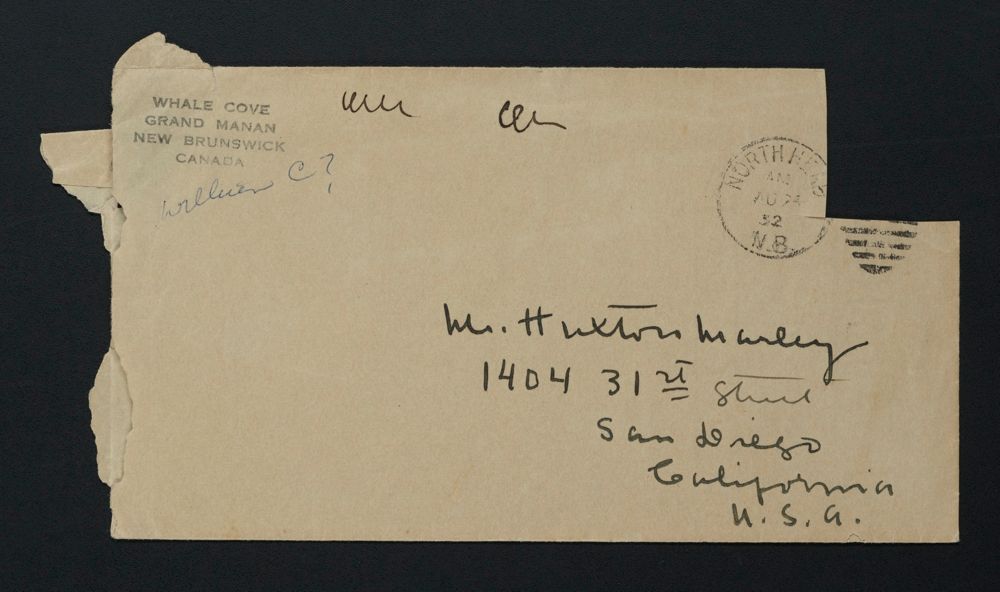 WHALE COVE
GRAND MANAN
NEW BRUNSWICK
CANADA
C?
NORTH HEAD
AM
AU 24
32
N.B.
Mr. Huxton Marley
1404 31st Street
San Diego
California
U.S.A.